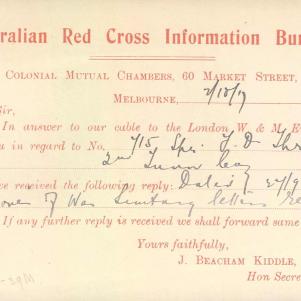 ralian Red Cross Information Bu
Colonial Mutual Chambers, 60 Market Street,
Melbourne, 2/10/17
Sir,
In answer to our cable to the London W & M E
u in regard to No. 715 Spr.
2nd Tunn Coy
ve received the following reply: Dated 27/9
of War
letters
If any further reply is received we shall forward same
Yours faithfully,
J. BEACHAM KIDDLE,
Hon Secre